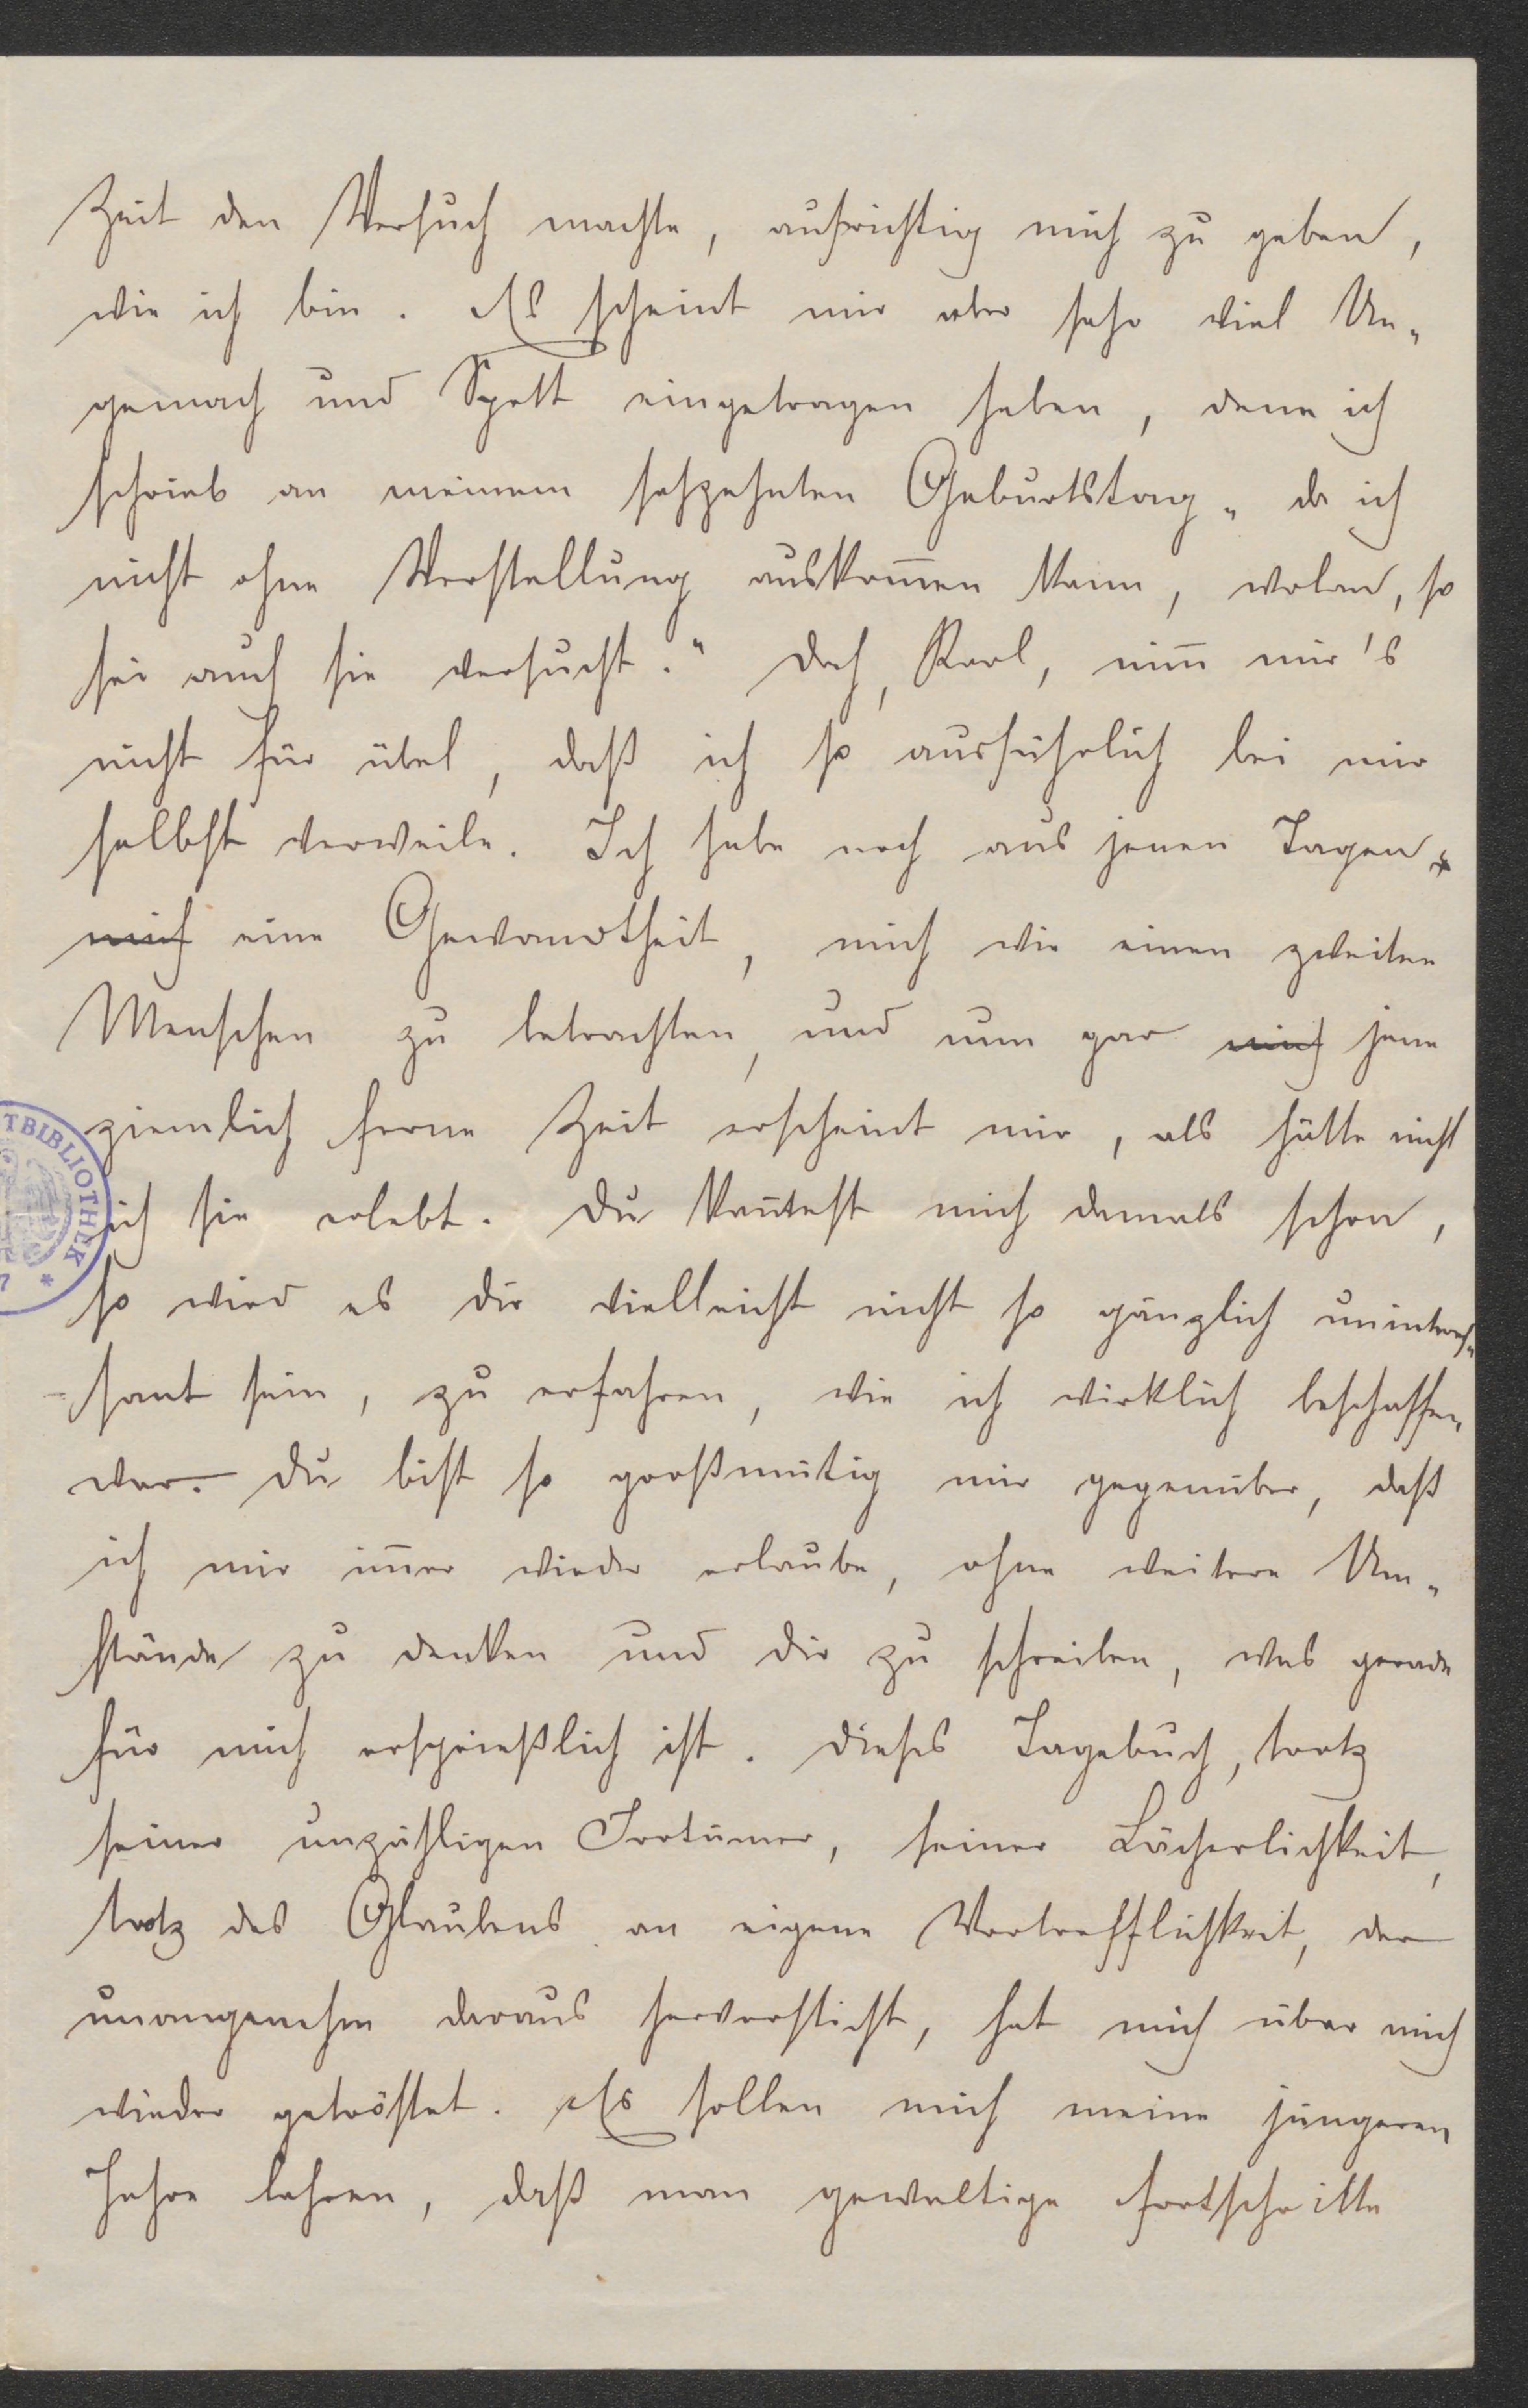 Zeit den Versuch machte, aufrichtig mich zu geben,
wie ich bin. Es scheint mir aber sehr viel Un„
gemach und Spott eingetragen haben, denn ich
schrieb an meinem sechzehnten Geburtstag „da ich
nicht ohne Verstellung auskom̅en kann, wolan, so
sei auch sie versucht.“ Doch, Karl, nim̅ mir's
nicht für übel, daß ich so ausführlich bei mir
selbst verweile. Ich habe noch aus jenen Tagen
mich eine Gewandtheit, mich wie einen zweiten
Menschen zu betrachten, und nun gar mich jene
ziemlich ferne Zeit erscheint mir, als hätte nicht
ich sie erlebt. Du kan̅test mich damals schon,
so wird es dir vielleicht nicht so gänzlich unintres„
sant sein, zu erfahren, wie ich wirklich beschaffen
war. Du bist so großmütig mir gegenüber, daß
ich mir im̅er wieder erlaube, ohne weitere Um„
stände zu denken und dir zu schreiben, was gerade
für mich ersprießlich ist. Dieses Tagebuch, trotz
seiner unzähligen Irrtümer, seiner Lächerlichkeit,
trotz des Glaubens an eigene Vortrefflichkeit, der
unangenehm daraus hervorsticht, hat mich über mich
wieder getröstet. Es sollen mich meine jüngeren
Jahre lehren, daß man gewaltige Fortschritte
TBIBLIOTHEK
7 *